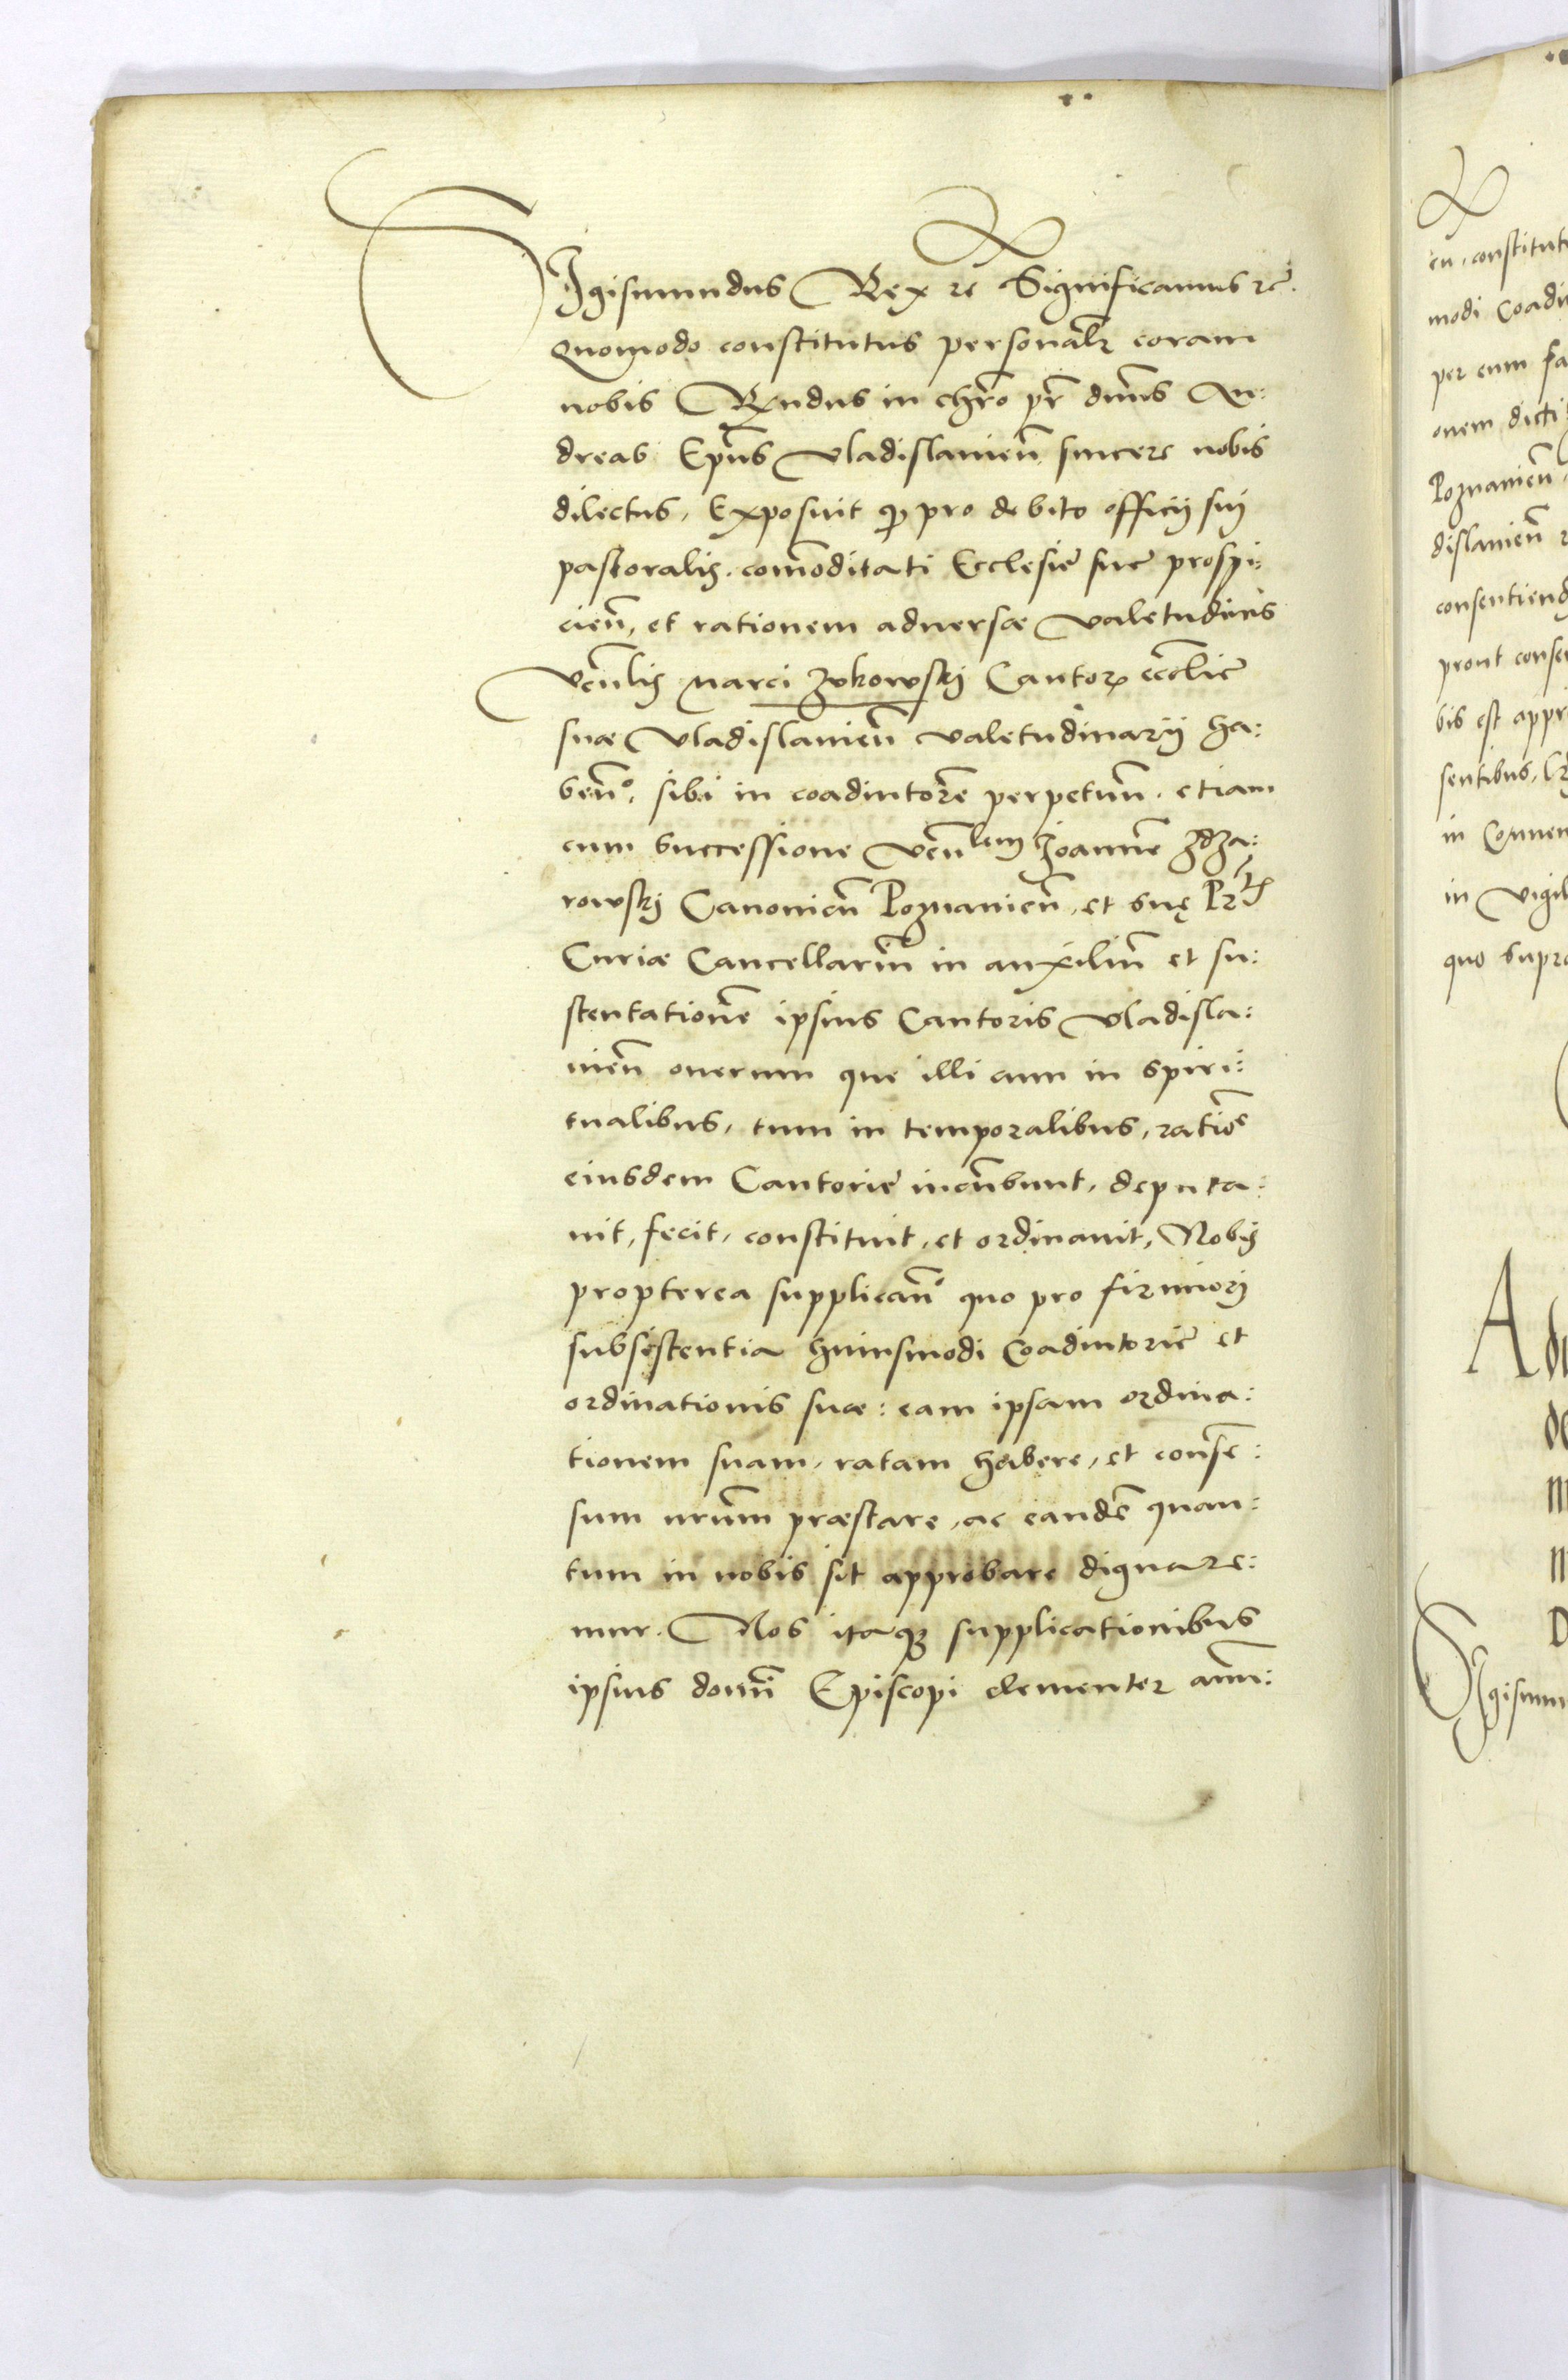 Sigismundus Rex etc Significamus etc.
Quomodo constitutus personalr coram
nobis Rndus in chro pr dnus An:
dreas Epus Vladislavien sincere nobis
dilectus, Exposuit q pro debito officij sui
pastoralis. comoditati Ecclesie sue prospi:
cien, et rationem adversæ valetudinis
Venlis Marci Zukowskj Cantor ecclie
suæ Vladislavien valetudinarij ha:
ben. sibi in coadiutore perpetuu. etiam
cum successione venlem Joanne Zdza:
rowskj Canonicu Poznanien, et suę Prtis
Curiæ Cancellariu in auxiliu et su:
stentatione ipsius Cantoris Vladisla:
uien onerum que illi cum in spiri:
tualibus, tum in temporalibus, ratioe
eiusdem Cantorie incubunt, deputa:
uit, fecit, constituit, et ordinauit, Nobis
propterea supplican quo pro firmiorj
subsistentia huiusmodi Coadiutorie et
ordinationis suæ: eam ipsam ordina:
tionem suam, ratam habere, et conse:
sum nrum præstare, ac eande quan:
tum in nobis sit approbare dignare:
mur. Nos itaq supplicationibus
ipsius domi Episcopi clementer annu:
eu, constitut
modi Coadiu
per eum fa
onem dicti
Poznanien,
dislavien
consentiend
prout conse
bis est appr
sentibus,
in Conuen
in vigil
quo supra
A
Sigismun